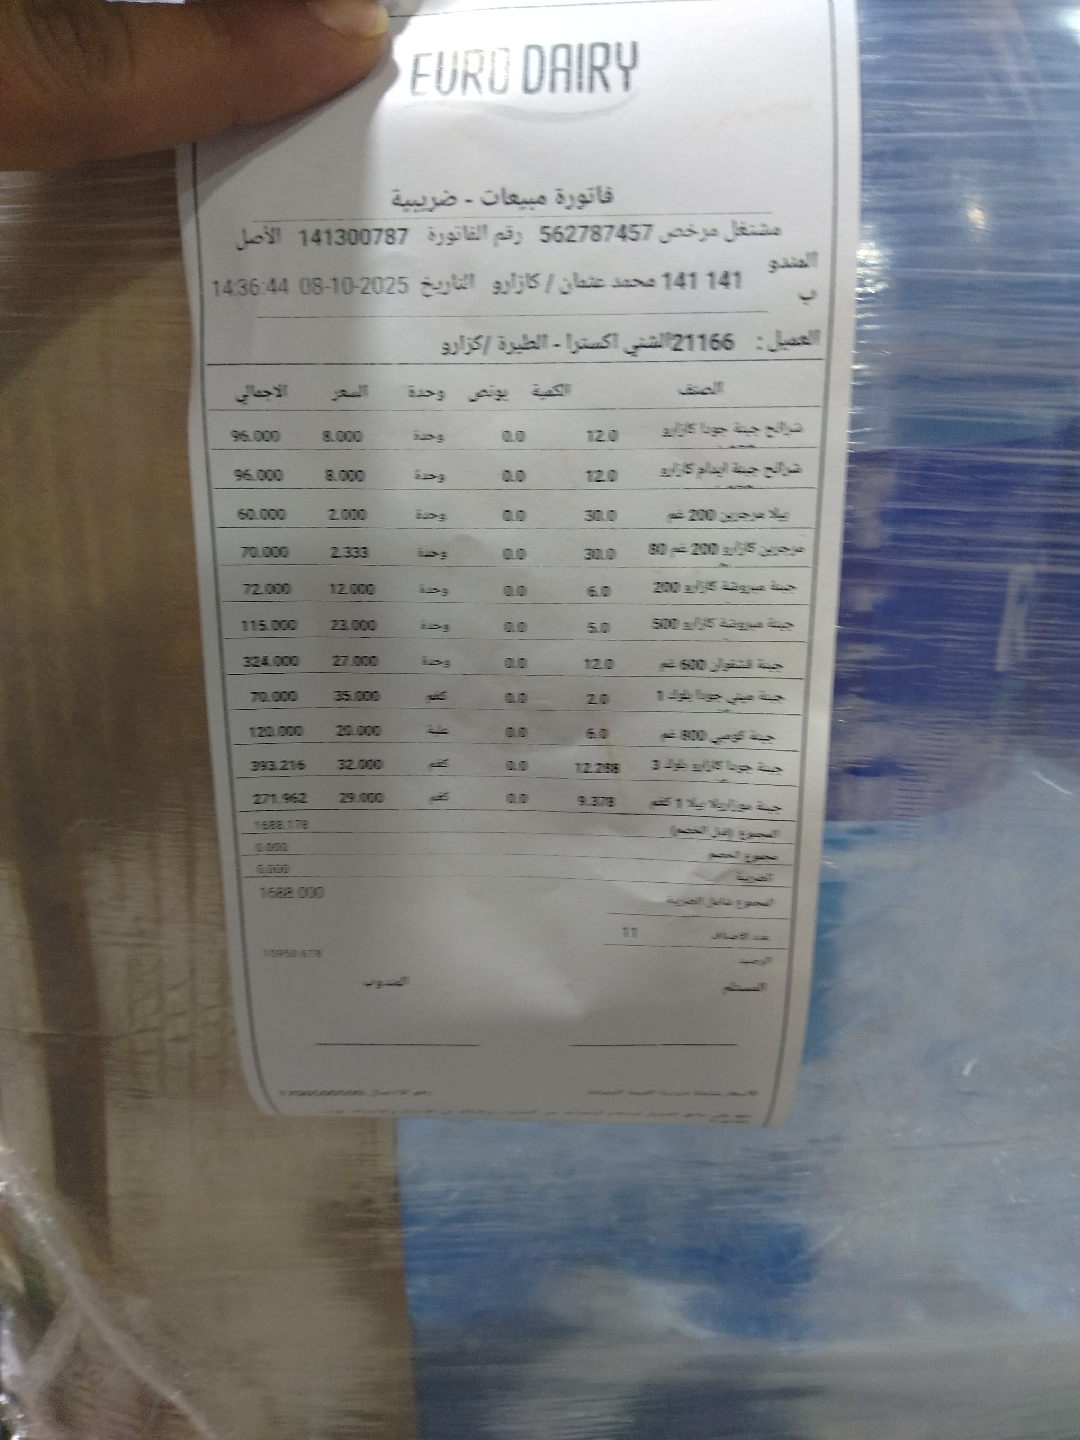 EURO DAIRY
فاتورة مبيعات - ضريبية
مشتغل مرخص 562787457 رقم الفاتورة 141300787 الأصل
المندوب 141 141 محمد عثمان / كازارو التاريخ 08-10-2025 14:36:44
العميل : 21166 الشني اكسترا - الطيرة /كزارو
الصنف الكمية بونص وحدة السعر الاجمالي
شرائح جبنة جودا كازارو 12.0 0.0 وحدة 8.000 96.000
شرائح جبنة ايدام كازارو 12.0 0.0 وحدة 8.000 96.000
بيلا مرجرين 200 غم 30.0 0.0 وحدة 2.000 60.000
مرجرين كازارو 200 غم 80 30.0 0.0 وحدة 2.333 70.000
جبنة مبروشة كازارو 200 6.0 0.0 وحدة 12.000 72.000
جبنة مبروشة كازارو 500 5.0 0.0 وحدة 23.000 115.000
جبنة قشقوان 600 غم 12.0 0.0 وحدة 27.000 324.000
جبنة ميني جودا بلوك 1 2.0 0.0 كغم 35.000 70.000
جبنة كومبي 800 غم 6.0 0.0 علبة 20.000 120.000
جبنة جودا كازارو بلوك 3 12.288 0.0 كغم 32.000 393.216
جبنة موزاريلا بيلا 1 كغم 9.378 0.0 كغم 29.000 271.962
المجموع (قبل الخصم) 1688.178
مجموع الخصم 0.000
الضريبة 0.000
المجموع شامل الضريبة 1688.000
عدد الاصناف 11
الرصيد 10950.678
المستلم المندوب